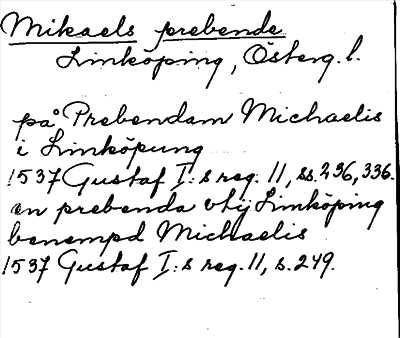 Mikaels prebende
Linköping, Österg. l.
på Prebendam Michaelis
i Linköpung
1537 Gustaf I:s reg. 11, ss. 236, 336.
en prebenda vtij Linköping
benempd Michaelis
1537 Gustaf I:s reg. 11, s. 249.